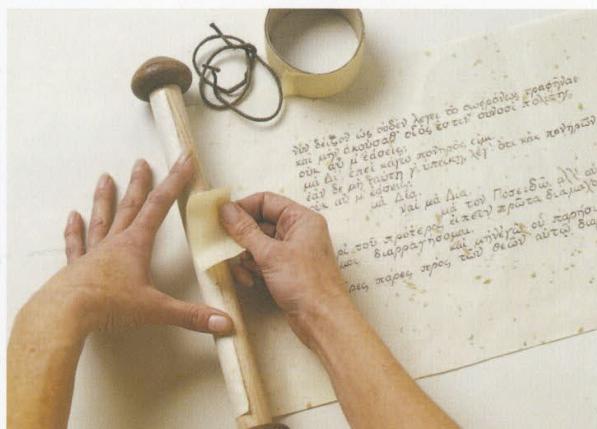 νῦν δεῖξον ὡς οὐδὲν λέγει τὸ σωφρόνως τραφῆναι
καὶ μὴν ἀκούσαθ' οἷός ἐστιν οὑτοσὶ πολίτης.
οὐκ αὖ μ' ἐάσεις;
μὰ Δί' ἐπεὶ κἀγὼ πονηρός εἰμι.
ἐὰν δὲ μὴ ταύτῃ γ' ὑπείκῃ, λέγ' ὅτι κἀκ πονηρῶν
οὐκ αὖ μ' ἐάσεις;
μὰ Δία.
ναὶ μὰ Δία.
μὰ τὸν Ποσειδῶ, ἀλλ' αὐ
ρὶ τοῦ πρότερος εἰπεῖν πρῶτα διαμαχο
μοι διαρραγήσομαι.
καὶ μὴν ἐγὼ οὐ παρήσω
ρες πάρες πρὸς τῶν θεῶν αὐτῷ διαρ